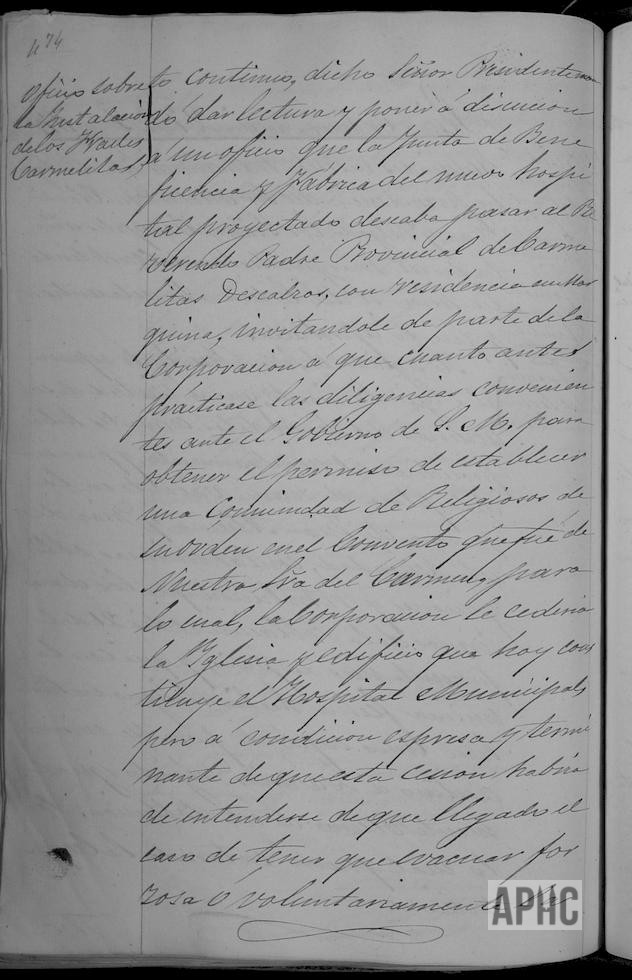 474
Oficio sobre
la Instalación
de los Frailes
Carmelitas,
to continuo, dicho Señor Presidente man
dó dar lectura y poner á discucion
á un oficio que la Junta de Bene
ficencia y Fábrica del nuevo hospi
tal proyectado deseaba pasar al Re
verendo Padre Provincial de Carme
litas Descalzos, con residencia en Mar
quina, invitandole de parte de la
Corporacion á que cuanto antes
practicase las diligencias convenien
tes ante el Gobierno de S. M. para
obtener el permiso de establecer
una Comunidad de Religiosos de
su orden en el Convento que fué de
Nuestra Sra del Carmen, para
lo cual, la Corporacion le cederia
la Yglesia y edificio que hoy cons
tituye el Hospital Municipal,
pero á condicion espresa y termi
nante de que esta cesion habria
de entenderse de que llegado el
caso de tener que evacuar for
zosa ó voluntariamente
APHC